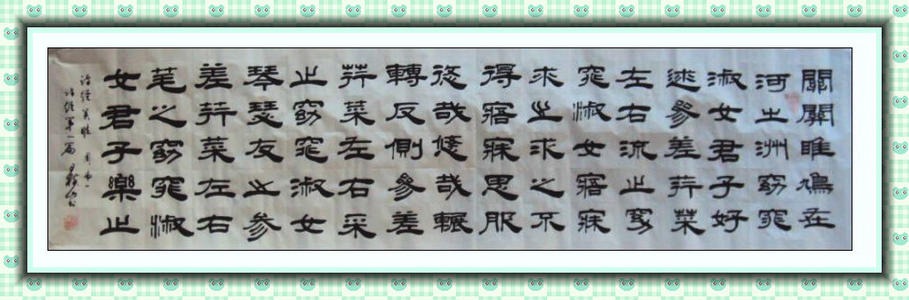 關關雎鳩在
河之洲窈窕
淑女君子好
逑參差荇菜
左右流之窈
窕淑女寤寐
求之求之不
得寤寐思服
悠哉悠哉輾
轉反側參差
荇菜左右采
之窈窕淑女
琴瑟友之參
差荇菜左右
芼之窈窕淑
女君子樂之
诗经关雎 周南一
诗经第一篇